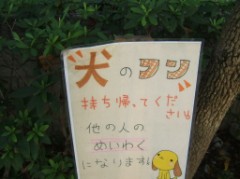 犬のフン
持ち帰ってくだ
さい。
他の人の
めいわく
になります!